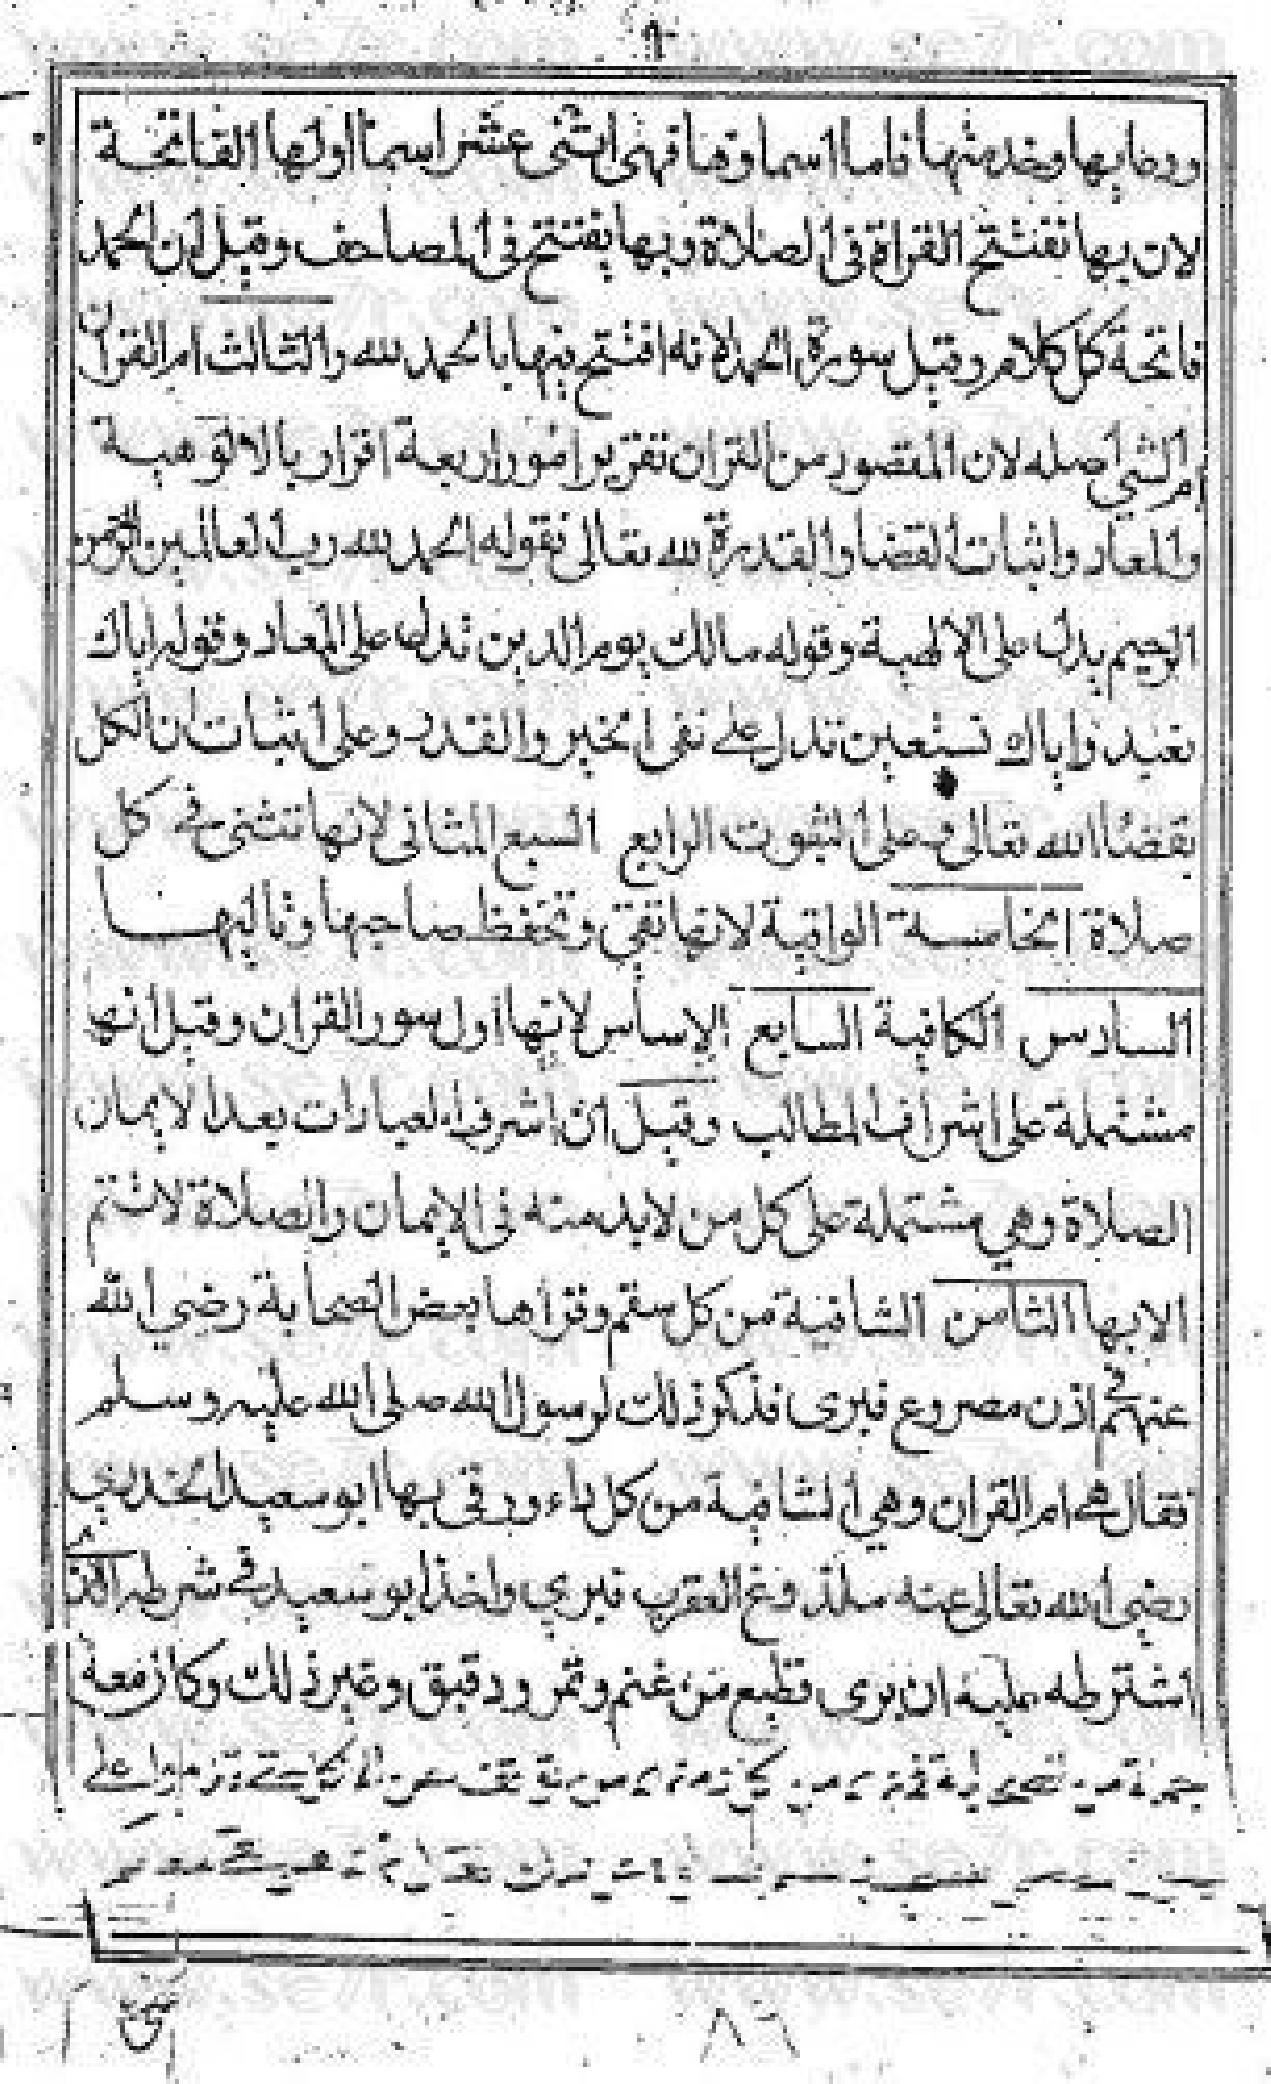 ٩
ودعايها وخدمتها فاما اسماوها فهى اثنى عشر اسما اولها الفاتحة
لان بها تفتتح القراة فى الصلاة وبها يفتتح فى المصاحف وقيل لان الحمد
فاتحة كل كلام وقيل سورة الحمد لانه افتتح فيها بالحمد لله والثالث ام القران
ام الشي اصله لان المقصود من القران تقرير امور اربعة اقرار بالالوهية
والمعاد واثبات القضا والقدرة لله تعالى فقوله الحمد لله رب العالمين الرحمن
الرحيم يدل على الالهية وقوله مالك يوم الدين تدل على المعاد وقوله اياك
نعبد واياك نستعين تدل على نفى الخير والقدر وعلى اثبات ان الكل
بقضا الله تعالى وعلى الثبوت الرابع السبع المثانى لانها تثنى في كل
صلاة الخامسة الواقية لانها تقي وتحفظ صاحبها وتاليها
السادس الكافية السابع الاساس لانها اول سور القران وقيل انها
مشتملة على اشراف المطالب وقيل ان اشرف العبادات بعد الايمان
الصلاة وهي مشتملة على كل من لابد منه فى الايمان والصلاة لا تتم
الابها الثامن الشافية من كل سقم وقراها بعض الصحابة رضي الله
عنهم في اذن مصروع فبرى فذكر ذلك لرسول الله صلى الله عليه وسلم
فقال هي ام القران وهي الشافية من كل داء ورقى بها ابو سعيد الخدري
رضى الله تعالى عنه ملذوغ العقرب فبري واخذ ابو سعيد في شرطه الذ
اشترطه عليه ان برى قطيع من غنم وتمر ودقيق وغير ذلك وكان معه
٨٦